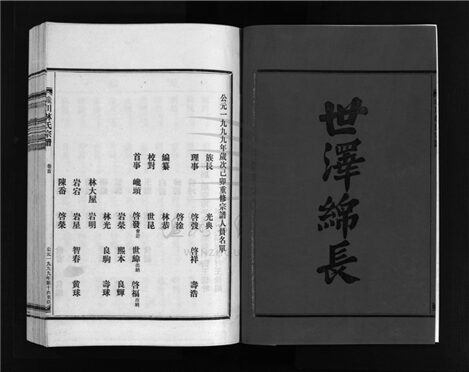 世澤綿長
公元一九九九年歲次己卯重修宗譜人員名單
族長 光典
理事 啓發 啓祥 壽浩
啓淦
編纂 林恭
校對 世昆
首事 巉頭 啓發 世緯 啓福
岩榮 熙本 良輝
林光 良駒 壽球
林大屋 岩明
岩宕 岩星 智春 黃球
陳畬 啓榮
川林氏宗譜
卷首